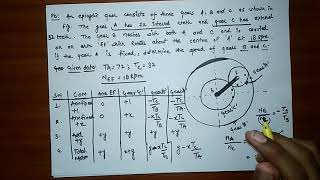 Pb: An epicyclic gear consists of three gears A, B and C as shown in
fig. The gear A has 72 internal teeth and gear C has external
32 teeth. The gear B meshes with both A and C and is carried
on an arm 'EF' which rotates about the centre of 'A' at 18 RPM
if the gear A is fixed, determine the speed of gears B and C.
Given data: TA=72; TC=32
NEF = 18 RPM
S.N Cond Arm EF
1. 0 +1 -TC/TB -TC/TA
2. 0 +x -xTC/TB -xTC/TA
3. Add +y +y +y +y +y
4. Total +y x+y y-xTC/TB y-xTC/TA